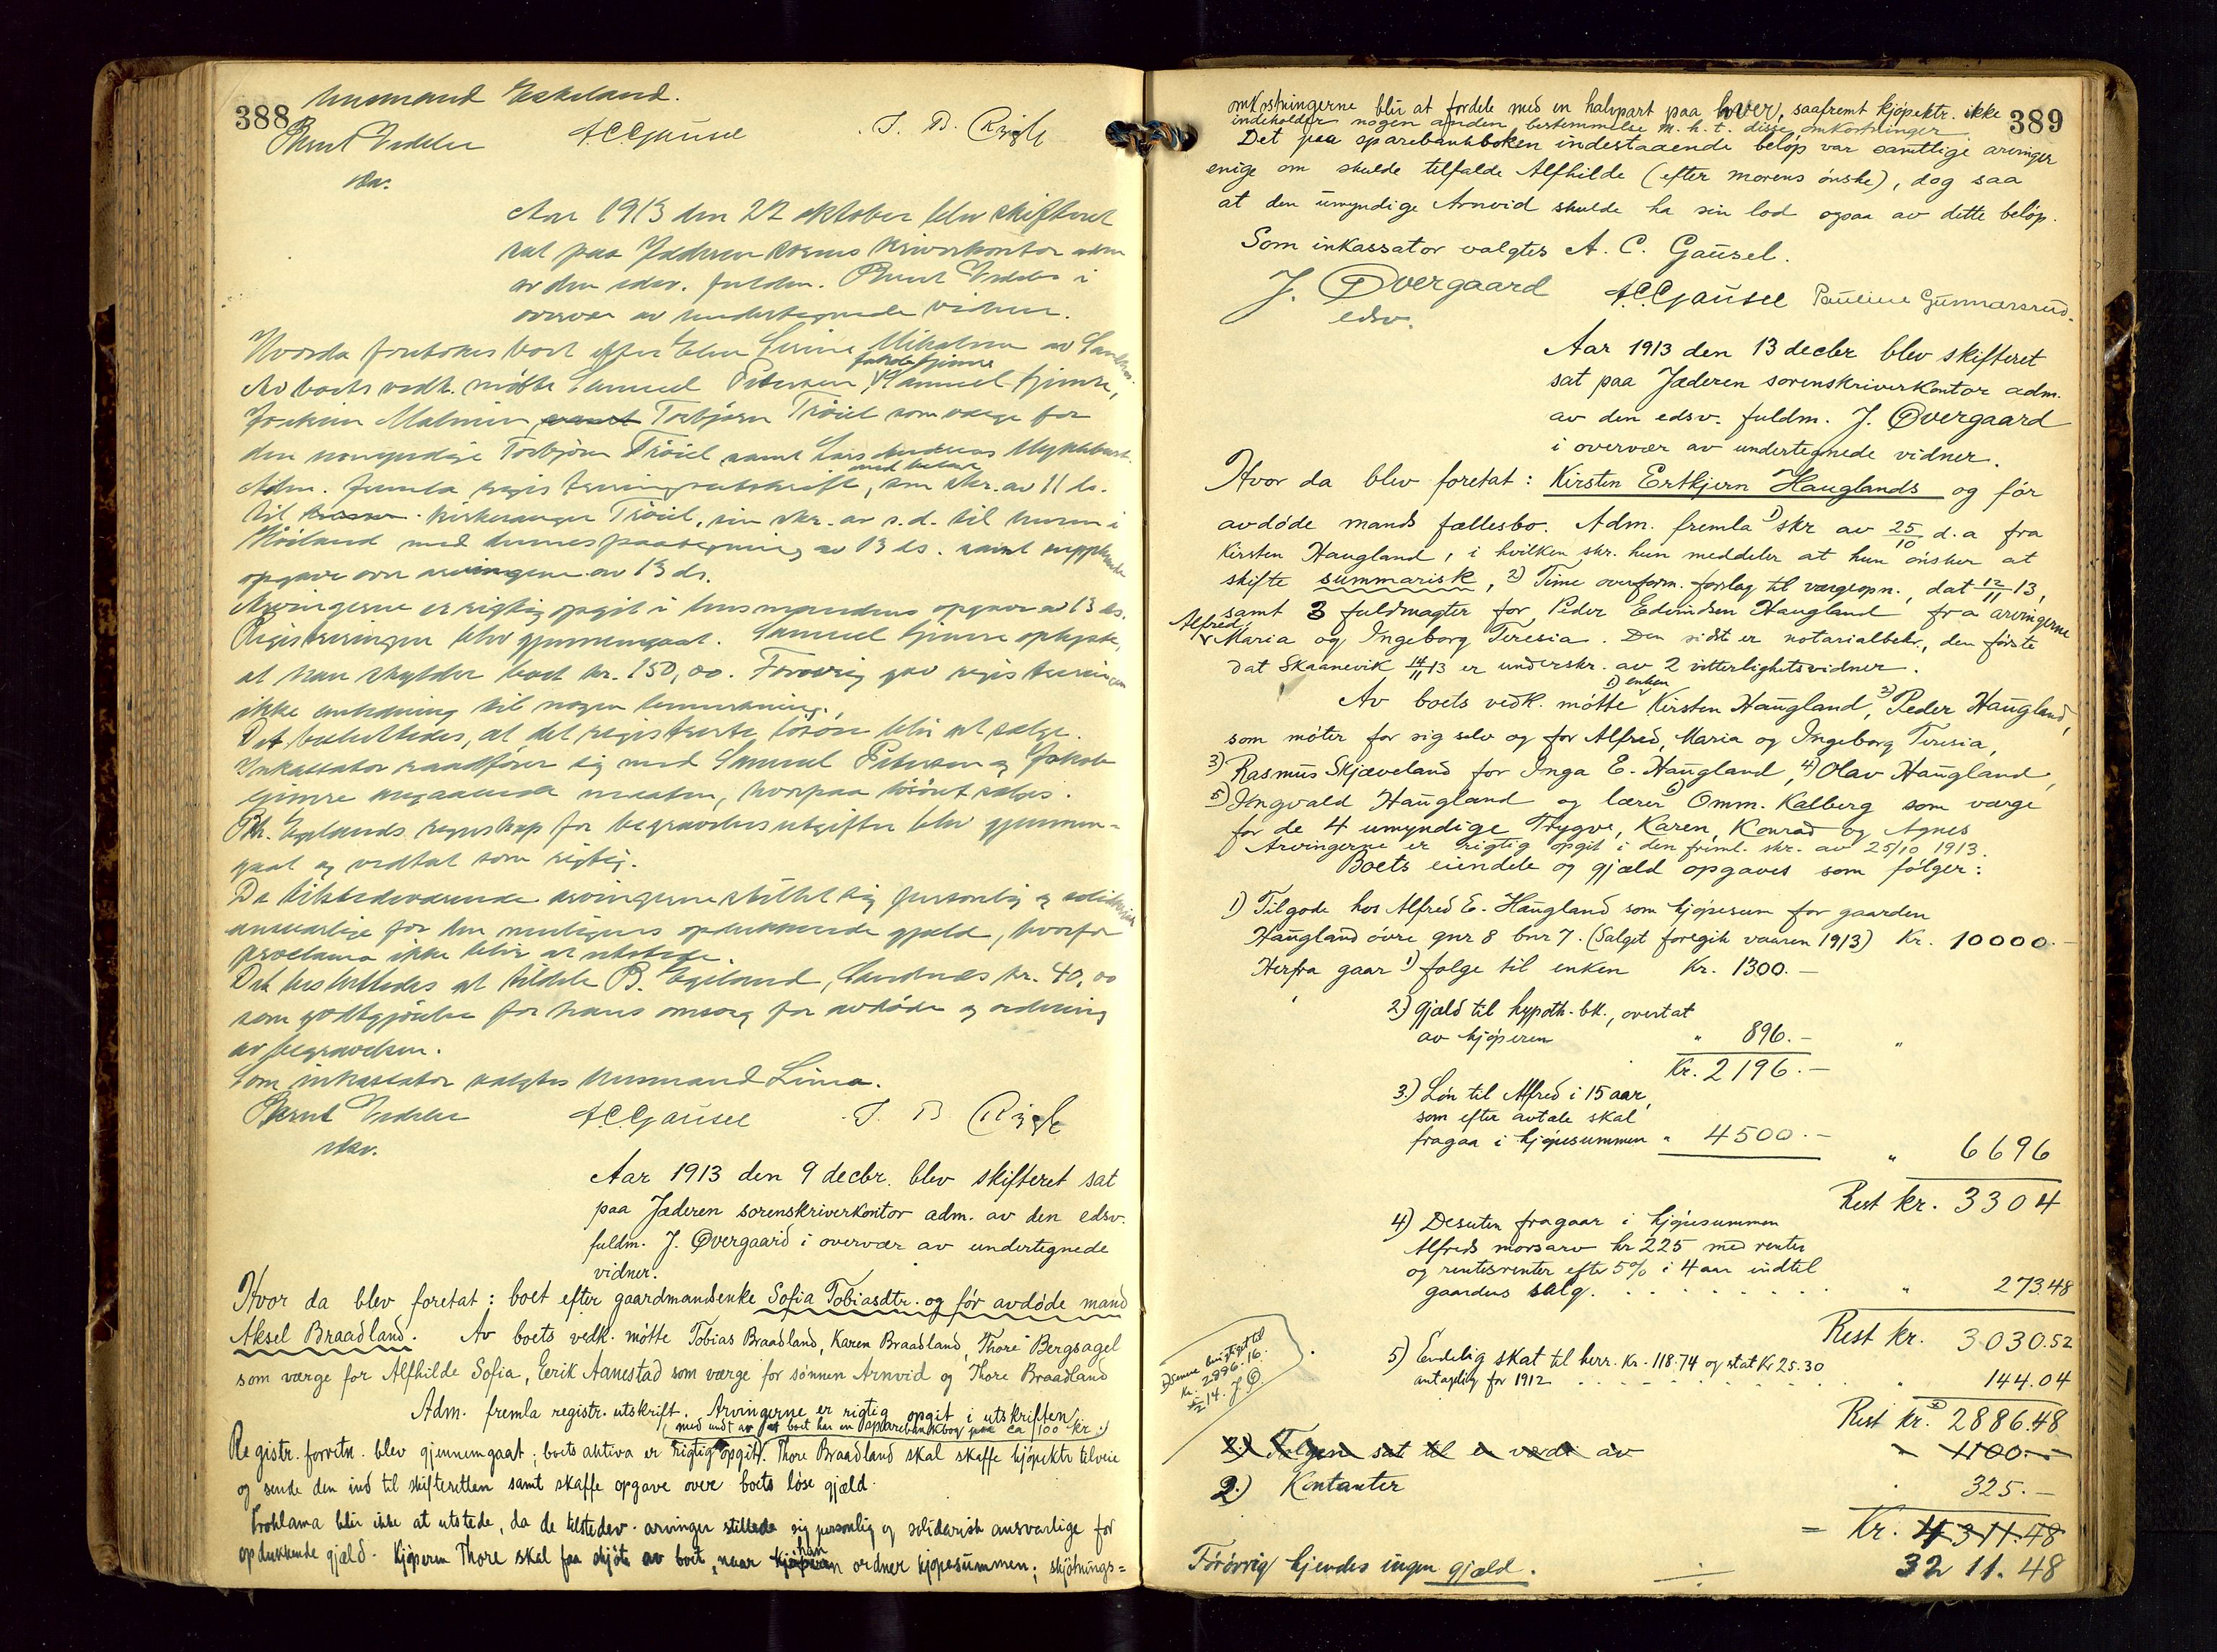 388
Eskeland.
Bernt A.C. Gausel S. B.
Aar 1913 den 22 oktober blev skifteret
sat paa Jæderen sorenskriverkontor adm
av den edsv. fuldm. Bernt i
overvær av undertegnede vidner.
Hvorda foretokes boet efter Serine av
Jakob Gjimre
Av boets vedk. møtte Samuel Petersen, Samuel Gjimre,
Malmin, samt Torbjørn Trøiel som værge for
den umyndige Torbjørn Trøiel samt Lars Andreas
med bilag
Adm. fremla registreringsutskrift, sin skr. av 11 ds.
til kirkesanger Trøiel, sin skr. av s.d. til
Høiland med dennes paategning av 13 ds. samt
opgave over arvingerne av 13 ds.
Arvingerne er rigtig opgit i opgave av 13 ds.
Registreringen blev gjennemgaat. Samuel Gjimre oplyste,
at han skylder boet kr. 150,00. Forøvrig gav registreringen
ikke anledning til nogen bemerkning.
Det besluttedes, at det registrerte løsøre blir at sælge.
Inkassator raadfører sig med Samuel Petersen og Jakob
Gjimre angaaende maaten, hvorpaa løsøret sælges.
Egelands regnskap for begravelsesutgifter blev gjennem-
gaat og vedtat som rigtig.
De tilstedeværende arvingerne stillet sig personlig og solidarisk
ansvarlige for den muligens opdukkende gjæld, hvorfor
proclama ikke blir at utstede.
Det besluttedes at tildele B. Egeland, Sandnæs kr. 40,00
som godtgjørelse for hans omsorg for avdøde og ordning
av begravelsen.
Som inkassator valgtes Lima.
Bernt A.C. Gausel S. B.
Aar 1913 den 9 decbr. blev skifteret sat
paa Jæderen sorenskriverkontor adm. av den edsv.
fuldm. J. Øvergaard i overvær av undertegnede
vidner.
Hvor da blev foretat: boet efter gaardmandsenke Sofia Tobiasdtr. og før avdøde mand
Aksel Braadland. Av boets vedk. møtte Tobias Braadland, Karen Braadland, Thore Bergsagel
som værge for Alfhilde Sofia, Eerik Aanestad som værge for sønnen Arnvid og Thore Braadland
Adm. fremla registr. utskrift. Arvingerne er rigtig opgit i utskriften
(med undt av at boet har en sparebankbog paa ca 100 kr.)
Registr. forretn. blev gjennemgaat; boets aktiva er rigtig opgit. Thore Braadland skal skaffe kjøpektr tilveie
og sende den ind til skifteretten samt skaffe opgave over boets løse gjæld.
Proklama blir ikke at utstede, da de tilstedev. arvinger stillede sig personlig og solidarisk ansvarlige for
opdukkende gjæld. Kjøperen Thore skal faa skjøte av boet, naar han ordner kjøpesummen; skjøtnings=
389
omkostningerne blir at fordele med en halvpart paa hver, saafremt kjøpektr. ikke
indeholder nogen anden bestemmelse m.h.t. disse omkostninger.
Det paa sparebankboken indestaaende beløp var samtlige arvinger
enige om skulde tilfalde Alfhilde (efter morens ønske), dog saa
at den umyndige Arnvid skulde ha sin lod ogsaa av dette beløp.
Som inkassator valgtes A. C. Gausel.
J. Øvergaard A.C. Gausel Pauline Gunnarsrud.
edsv.
Aar 1913 den 13 decbr blev skifteret
sat paa Jæderen sorenskriverkontor adm.
av den edsv. fuldm. J. Øvergaard
i overvær av undertegnede vidner.
Hvor da blev foretat: Kirsten Ertkjern Hauglands og før
avdøde mands fællesbo. Adm. fremla 1) skr av 25/10 d.a fra
Kirsten Haugland, i hvilken skr. hun meddeler at hun ønsker at
skifte summarisk, 2) Time overform. forslag til værgeopn., dat 12/11 13,
samt 3 fuldmagter for Peder Edvindsen Haugland fra arvingerne
Alfred,
Maria og Ingeborg Teresia. Den sidst er notarialbekr., den første
dat Skaanevik 14/11 13 er underskr. av 2 vitterlighetsvidner.
1) enken
Av boets vedk. møtte Kirsten Haugland, 2) Peder Haugland,
som møter for sig selv og for Alfred, Maria og Ingeborg Teresia,
3) Rasmus Skjæveland for Inga E. Haugland, 4) Olav Haugland,
5) Yngvald Haugland og lærer 6) Omm. Kalberg som værge
for de 4 umyndige Trygve, Karen, Konrad og Agnes
Arvingerne er rigtig opgit i den freml. skr. av 25/10 1913.
Boets eiendele og gjæld opgaves som følger:
1) Tilgode hos Alfred E. Haugland som kjøpesum for gaarden
Haugland øvre gnr 8 bnr 7. (Salget foregik vaaren 1913) Kr. 10000.-
Herfra gaar 1) følge til enken Kr. 1300.-
2) gjæld til hypoth.bk., overtat
av kjøperen " 896.- "
Kr. 2196.-
3.) Løn til Alfred i 15 aar,
som efter avtale skal
fragaa i kjøpesummen " 4500.- " 6696
Rest kr. 3304
4) Desuten fragaar i kjøpesummen
Alfreds morsarv kr 225 med renter
og rentesrenter efter 5% i 4 aar indtil
gaardens salg. . . . . . . . " 273.48
Rest kr. 3030.52
5) Endelig skat til herr. Kr. 118.74 og stat Kr 25.30
antagelig for 1912 . . . . . . " 144.04
Rest kr. 2886.48
Denne berigtiget til
kr. 2896.16.
14. J.Ø.
2.) Følgen sat til en værdi av " 1100.-
2.) Kontanter " 325.-
= Kr. 4311.48
32 11.48
Forøvrig kjendes ingen gjæld.